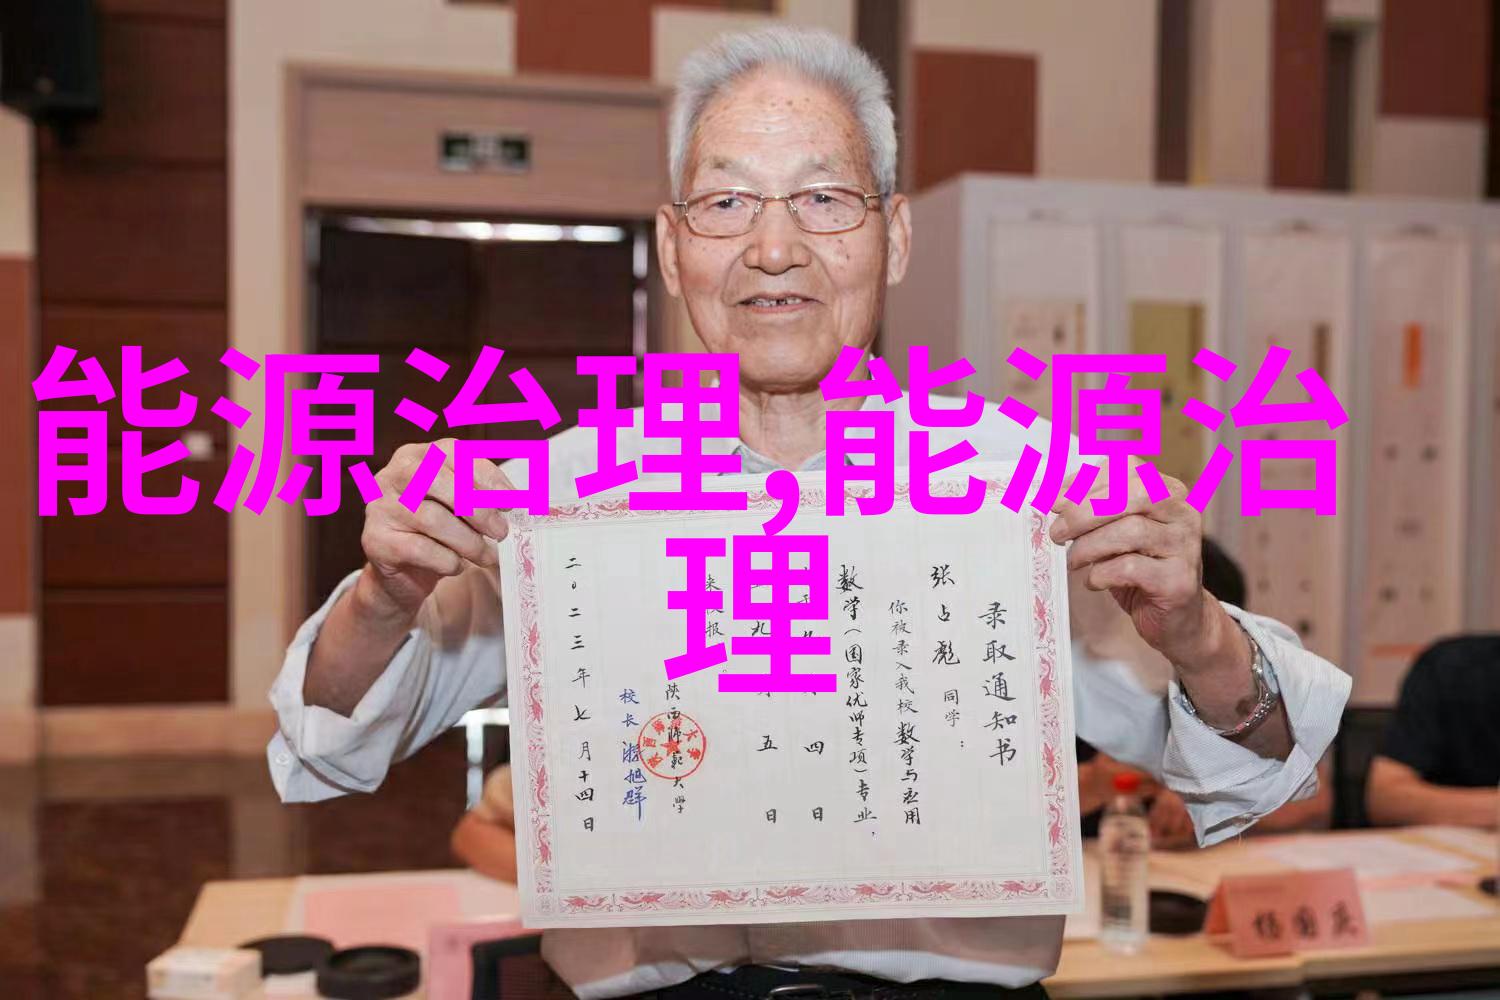 能源治理,能源治
理
录取通知书
张占彪 同学：
你被录入我校 数学与应用
数学（国家优师专项）专业，
四 日
五 日
陕西师范大学
校长 游旭群
二〇二三年七月十四日
杨国庆